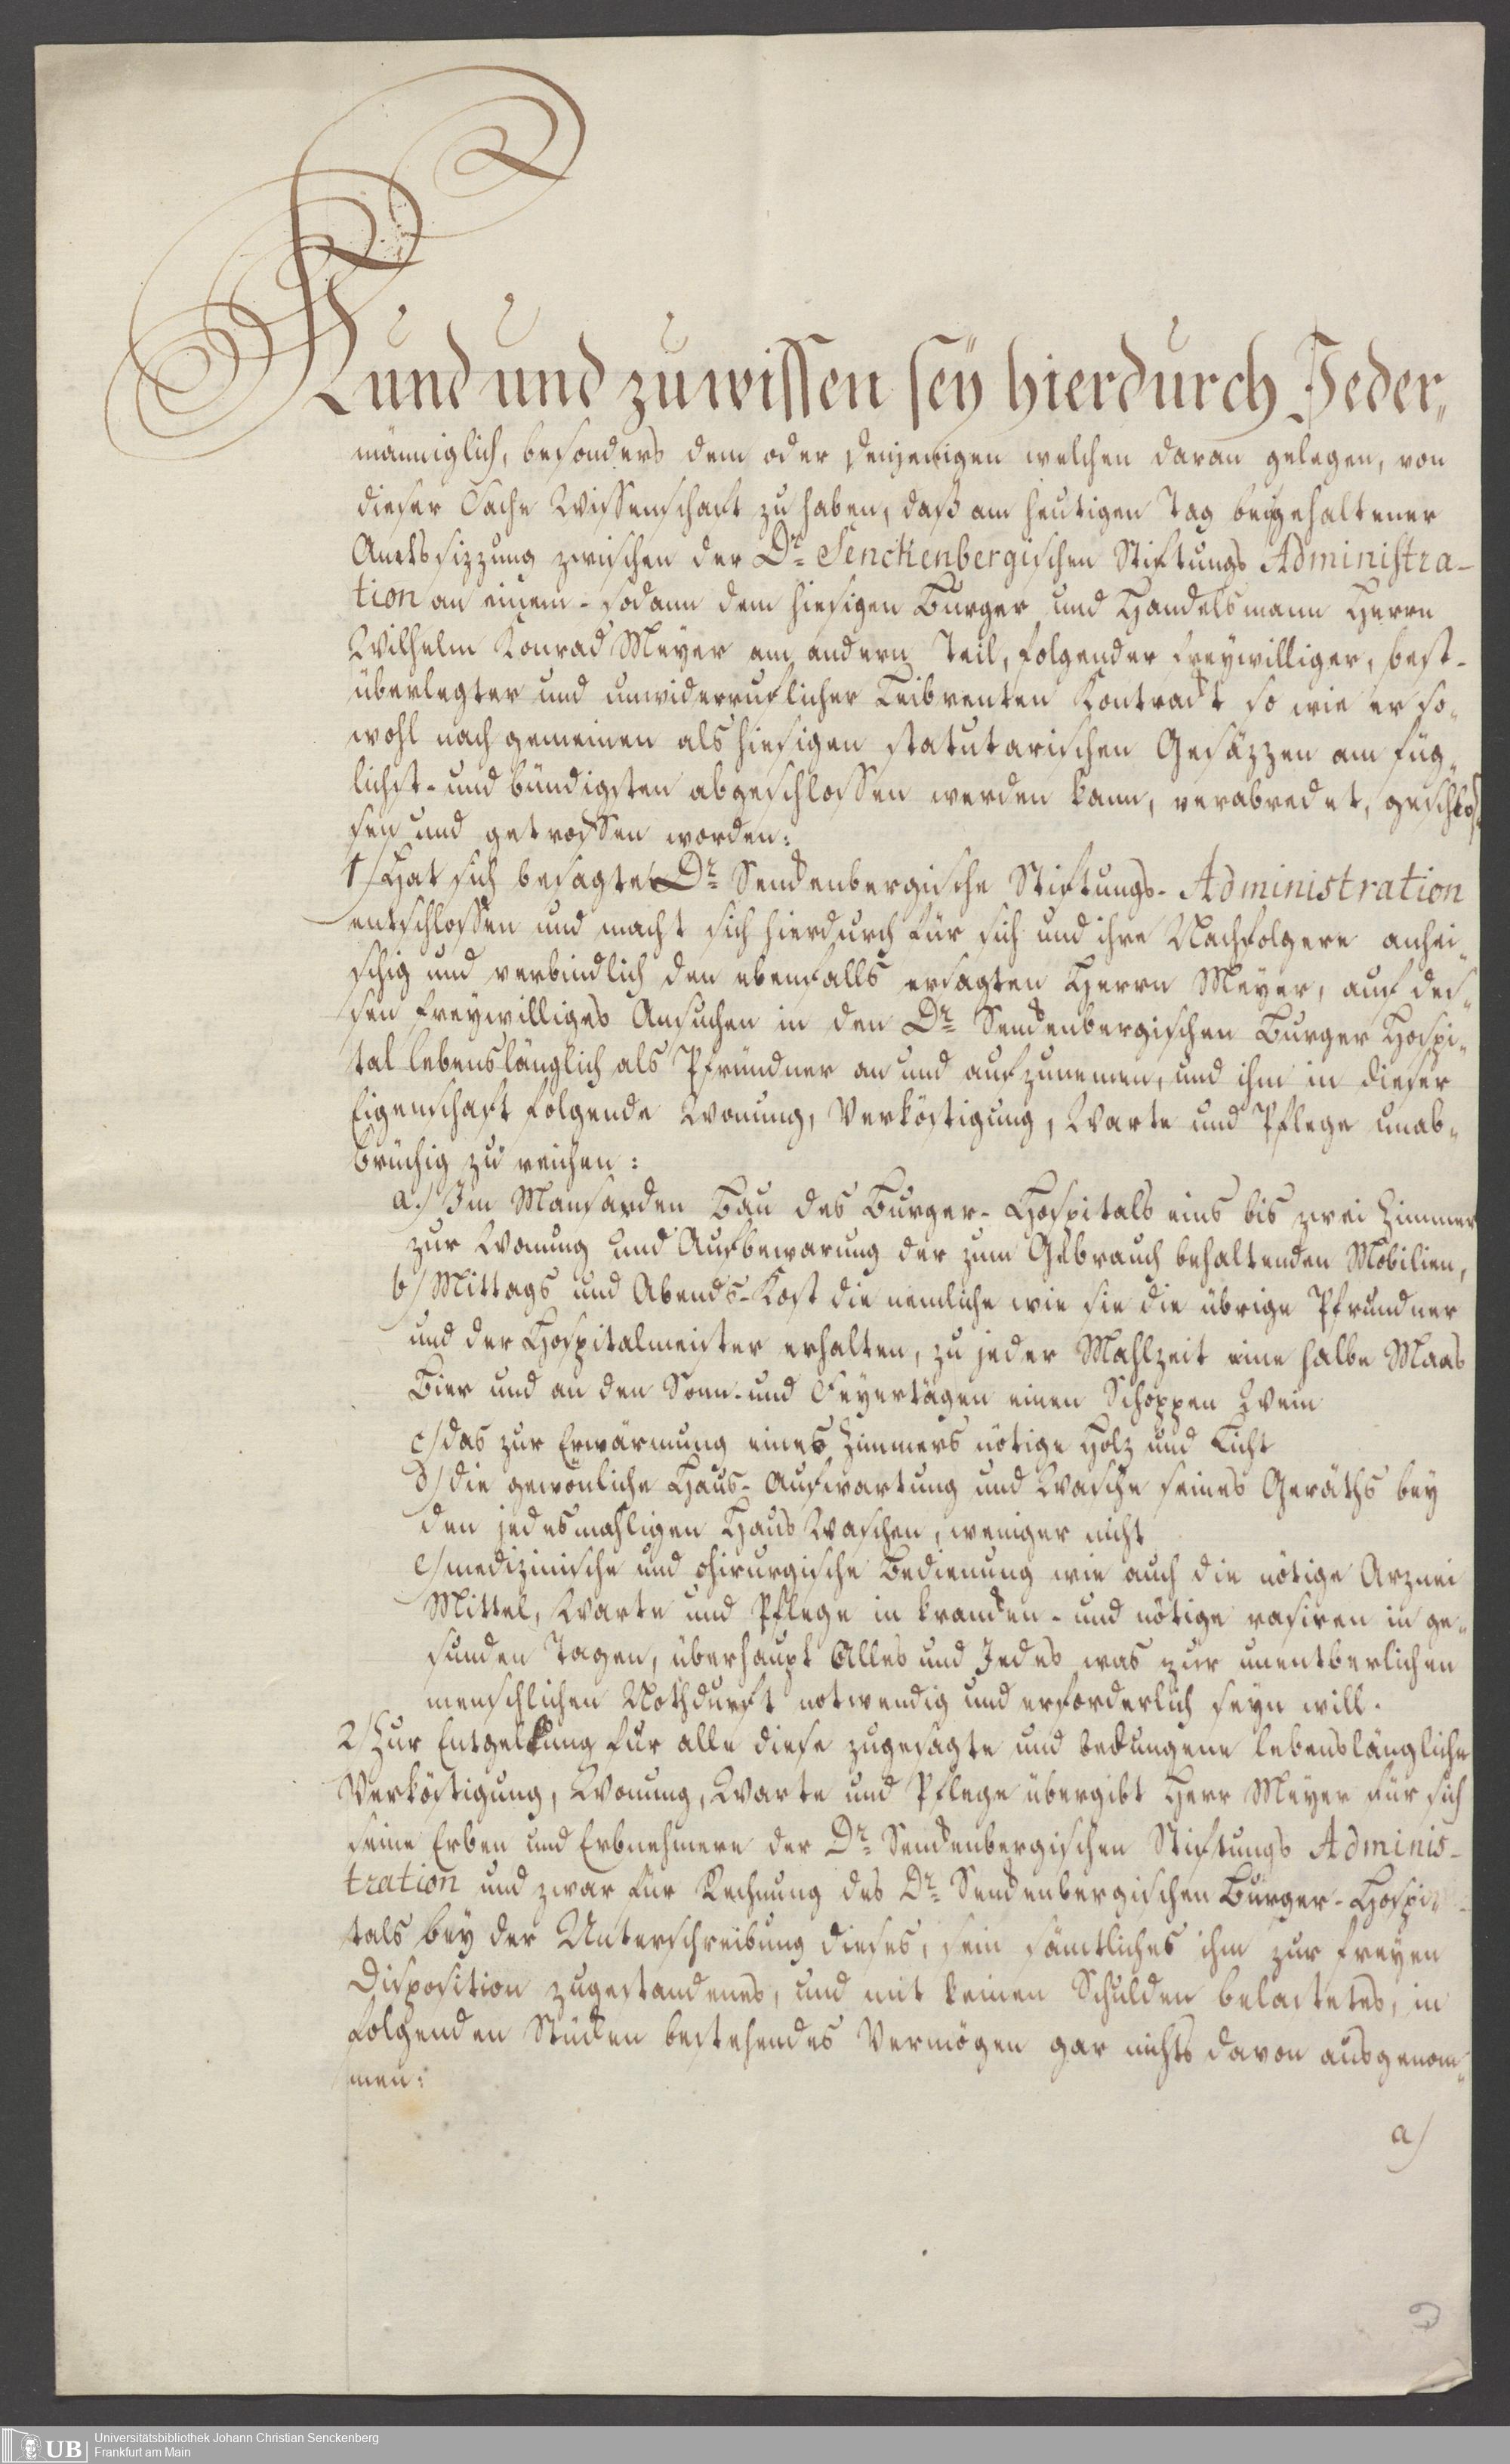 Kund und zu wissen seÿ hierdurch Jeder„
männiglich, besonders dem oder denjenigen welchen daran gelegen, von
dieser Sache Wissenschaft zu haben, daß am heutigen Tag bei gehaltener
Amtssizzung zwischen der Dr. Senckenbergischen Stiftungs Administra-
tion an einem- sodann dem hiesigen Burger und Handelsmann Herrn
Wilhelm Konrad Meyer am andern Teil, folgender freywilliger, best-
überlegter und unwiderruflicher Leibrenten Kontrackt so wie er so„
wohl nach gemeinen als hiesigen statutarischen Gesäzzen am füg„
lichst- und bündigsten abgeschlossen werden kann, verabredet, geschlos„
sen und getroffen worden:
1/ Hat sich besagte Dr. Senckenbergische Stiftungs- Administration
entschlossen und macht sich hierdurch für sich und ihre Nachfolgere anhei„
schig und verbindlich den ebenfalls ersagten Herrn Meyer, auf des„
sen freywilliges Ansuchen in den Dr. Senckenbergischen Burger Hospi„
tal lebenslänglich als Pfründner an und aufzunemen, und ihm in dieser
Eigenschaft folgende Wonung, Verköstigung, Warte und Pflege unab„
brüchig zu reichen:
a./ Im Mansarden Bau des Burger- Hospitals eins bis zwei Zimmer
zur Wonung und Aufbewarung der zum Gebrauch behaltenden Mobilien,
b/ Mittags und Abends-Kost die nemliche wie sie die übrige Pfründner
und der Hospitalmeister erhalten, zu jeder Mahlzeit eine halbe Maas
Bier und an den Sonn- und Feyertägen einen Schoppen Wein
c/ das zur Erwärmung eines Zimmers nötige Holz und Licht
d/ die gewönliche Haus- Aufwartung und Wasche seines Geräths bey
den jedesmahligen Haus Waschen, weniger nicht
e/ medizinische und chirurgische Bedienung wie auch die nötige Arznei
Mittel, Warte und Pflege in krancken- und nötige rasiren in ge„
sunden Tagen, überhaupt Alles und Jedes was zur unentberlichen
menschlichen Nothdurft notwendig und erforderlich seyn will.
2/ Zur Entgeltung für alle diese zugesagte und bedungene lebenslängliche
Verköstigung, Wonung, Warte und Pflege übergibt Herr Meyer für sich
seine Erben und Erbnehmere der Dr. Senckenbergischen Stiftungs Adminis-
tration und zwar für Rechnung des Dr. Senckenbergischen Burger-Hospi-
tals bey der Unterschreibung dieses, sein sämtliches ihm zur freyen
Disposition zugestandenes, und mit keinen Schulden belastetes, in
folgenden Stücken bestehendes Vermögen gar nichts davon ausgenom„
men:
a/
UB Universitätsbibliothek Johann Christian Senckenberg
Frankfurt am Main